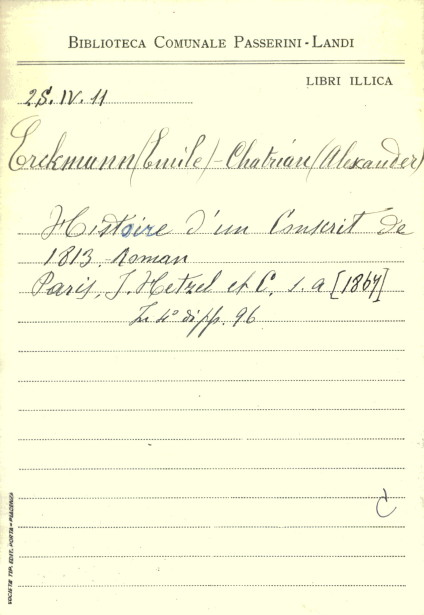 BIBLIOTECA COMUNALE PASSERINI-LANDI
LIBRI ILLICA
2S.IV.11
Erckmann (Emile) - Chatrian (Alexander)
Histoire d'un Conscrit de
1813. Roman
Paris, J. Hetzel et C. s. a [1867]
In 4° di pp. 96
C
SOCIETÀ TIP. EDIT. PORTA - PIACENZA